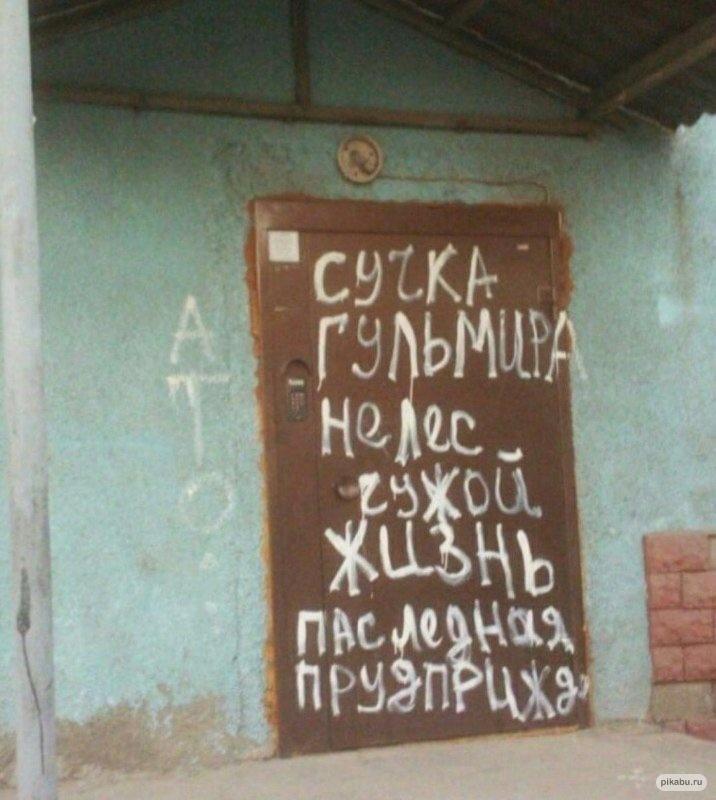 СУЧКА
ГУЛЬМИРА
НеЛеС
ЧУЖОЙ
ЖИЗНЬ
ПАСЛедНАЯ
ПРУДПРИЖд
А
Т
О
pikabu.ru